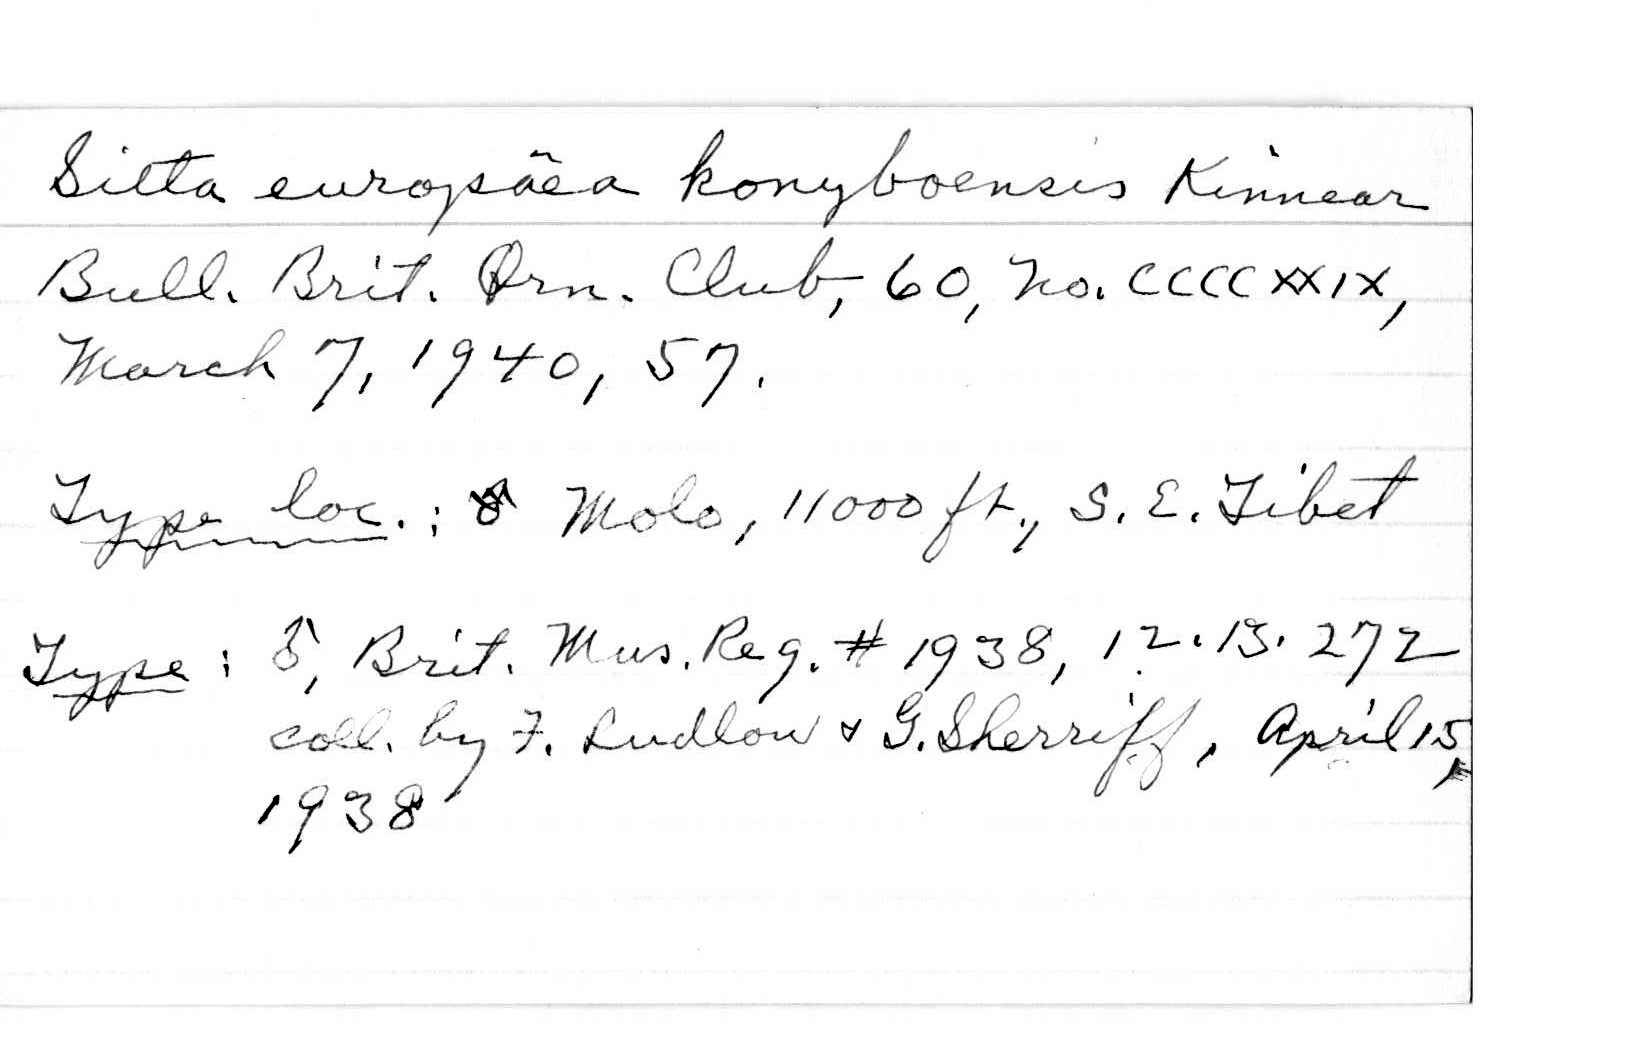 Sitta europäea kongboensis Kinnear
Bull. Brit. Orn. Club, 60, No. CCCCXXIX,
March 7, 1940, 57.
Type loc.: Molo, 11000 ft., S. E. Tibet
Type: ♂, Brit. Mus. Reg. # 1938, 12.13.272
coll. by F. Ludlow & G. Sherriff, April 15,
1938